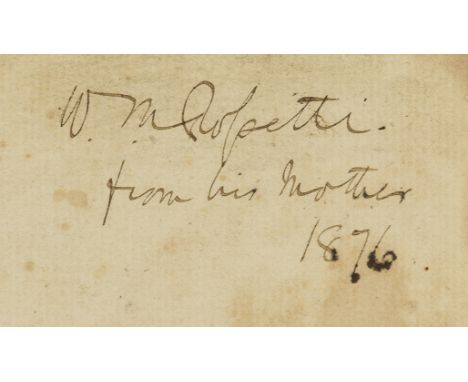 W. M Rossetti.
from his Mother
1876